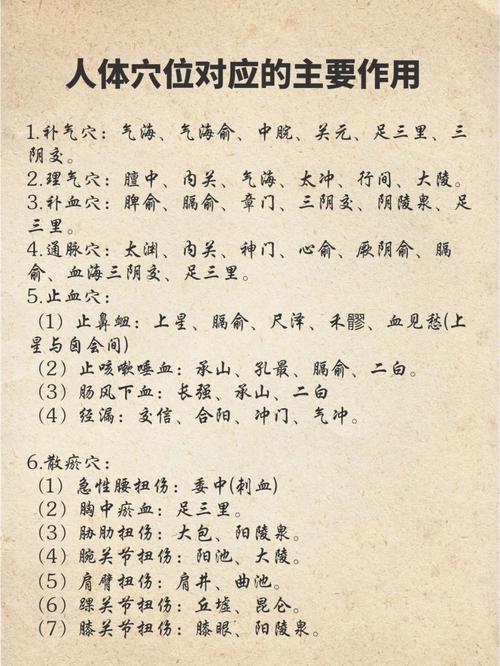 人体穴位对应的主要作用
1.补气穴：气海、气海俞、中脘、关元、足三里、三
阴交。
2.理气穴：膻中、内关、气海、太冲、行间、大陵。
3.补血穴：脾俞、膈俞、章门、三阴交、阴陵泉、足
三里。
4.通脉穴：太渊、内关、神门、心俞、厥阴俞、膈
俞、血海三阴交、足三里。
5.止血穴：
（1）止鼻衄：上星、膈俞、尺泽、禾髎、血见愁(上
星与囟会间)
（2）止咳嗽唾血：承山、孔最、膈俞、二白。
（3）肠风下血：长强、承山、二白
（4）经漏：交信、合阳、冲门、气冲。
6.散瘀穴：
（1）急性腰扭伤：委中(刺血)
（2）胸中瘀血：足三里。
（3）胁肋扭伤：大包、阳陵泉。
（4）腕关节扭伤：阳池、大陵。
（5）肩臂扭伤：肩井、曲池。
（6）踝关节扭伤：丘墟、昆仑。
（7）膝关节扭伤：膝眼、阳陵泉。